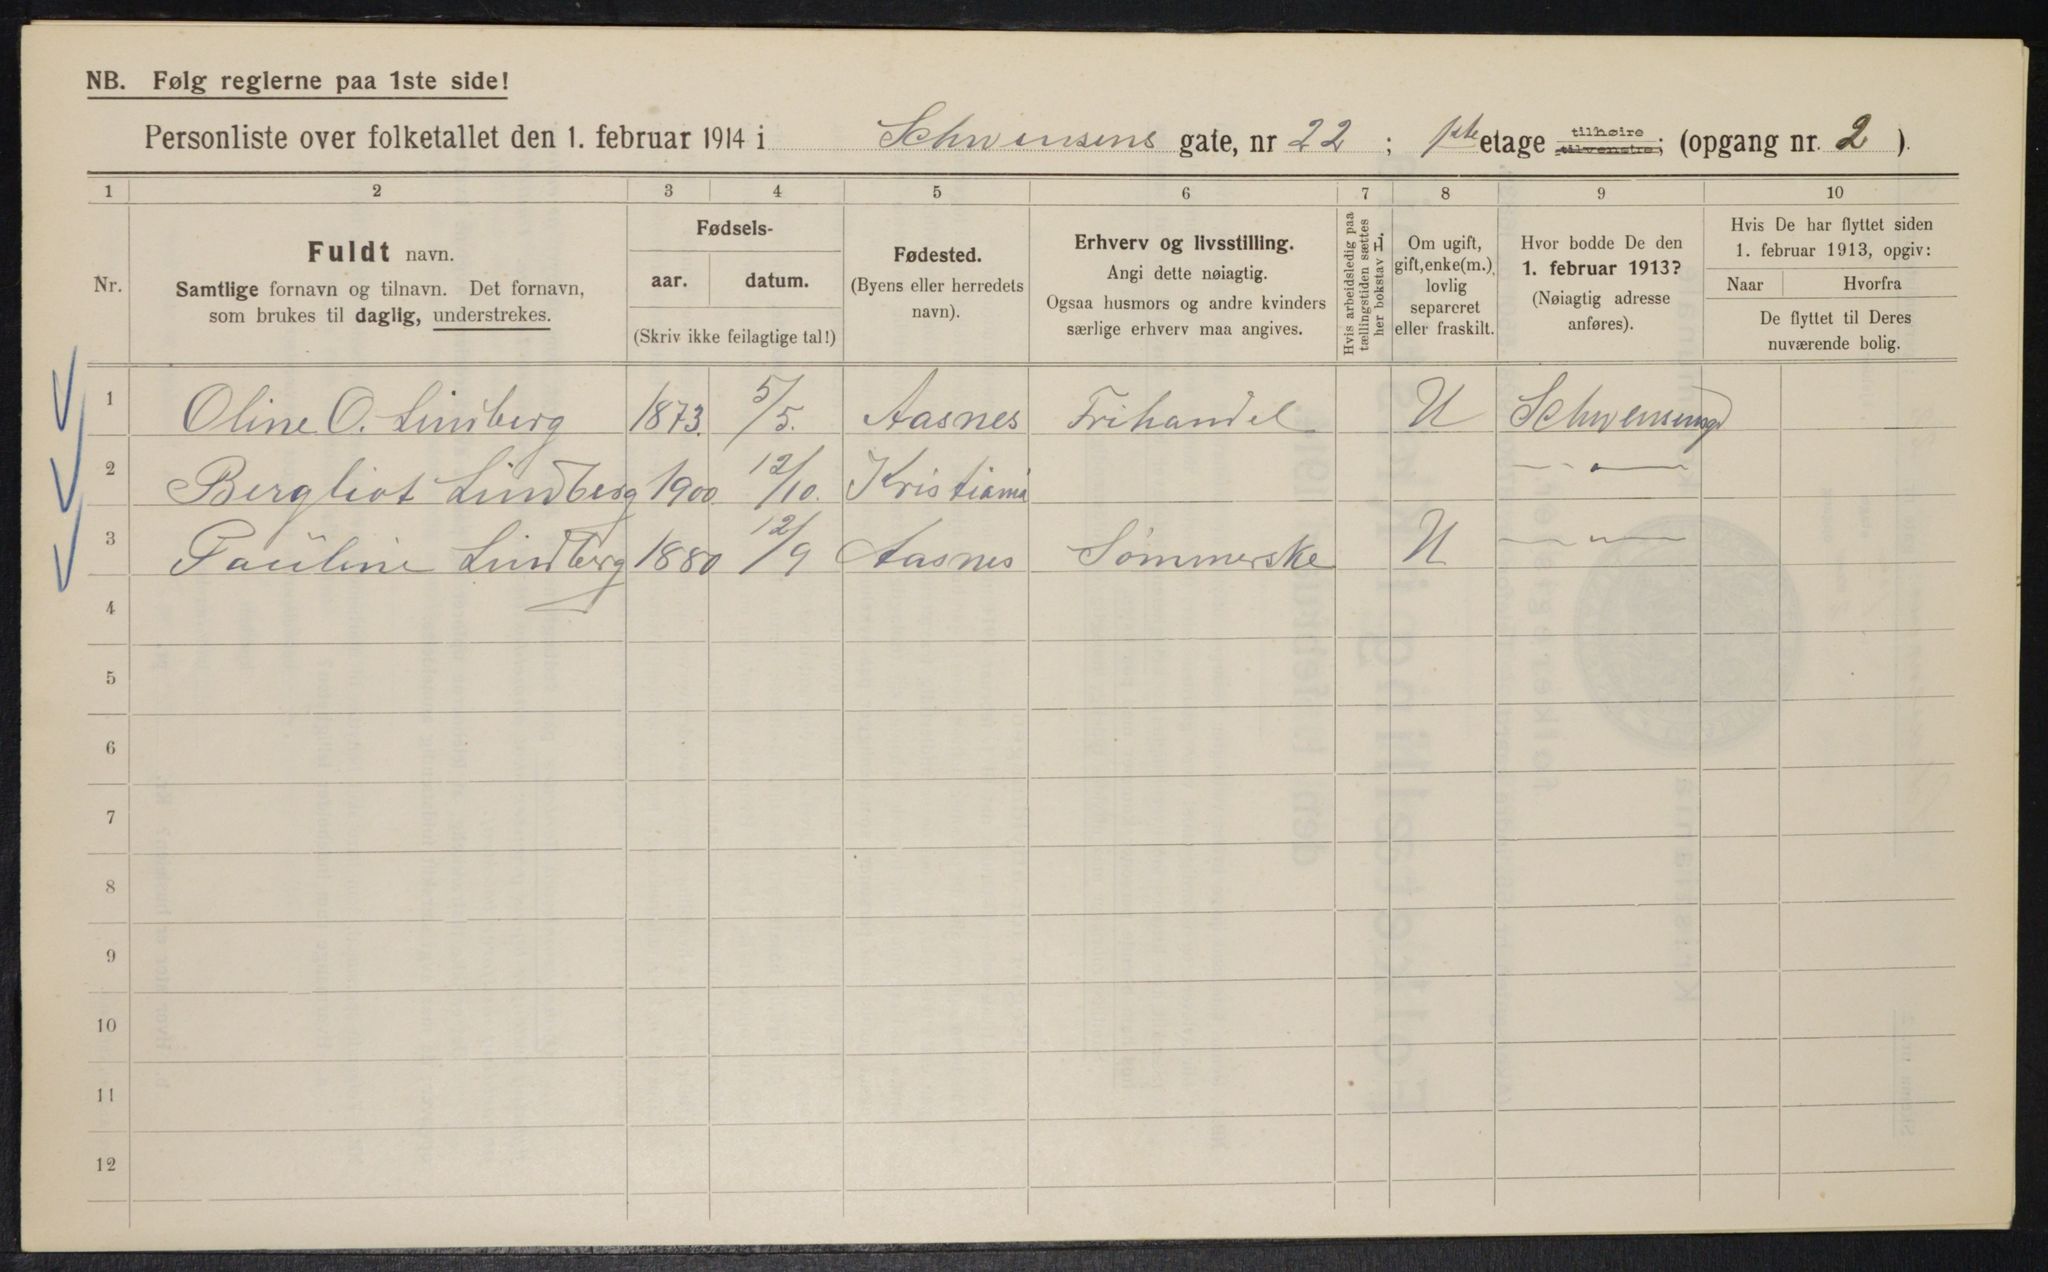 NB. Følg reglerne paa 1ste side!
Personliste over folketallet den 1. februar 1914 i Schwensens gate, nr 22 ; 1ste etage tilhøire tilvenstre; (opgang nr. 2 ).
1 2 3 4 5 6 7 8 9 10
Nr.
Fuldt navn.
Samtlige fornavn og tilnavn. Det fornavn,
som brukes til daglig, understrekes.
Fødsels-
aar. datum.
(Skriv ikke feilagtige tal!)
Fødested.
(Byens eller herredets
navn).
Erhverv og livsstilling.
Angi dette nøiagtig.
Ogsaa husmors og andre kvinders
særlige erhverv maa angives.
Hvis arbeidsledig paa
tællingstiden sættes
her bokstav L.
Om ugift,
gift, enke(m.),
lovlig
separeret
eller fraskilt.
Hvor bodde De den
1. februar 1913?
(Nøiagtig adresse
anføres).
Hvis De har flyttet siden
1. februar 1913, opgiv:
Naar Hvorfra
De flyttet til Deres
nuværende bolig.
1 Oline O. Lindberg 1873. 5/5. Aasnes Frihandel U Schwensensgd
2 Bergliot Lindberg 1900 12/10. Kristiania — " —
3 Pauline Lindberg 1880 12/9 Aasnes Sømmerske U — " —
4
5
6
7
8
9
10
11
12